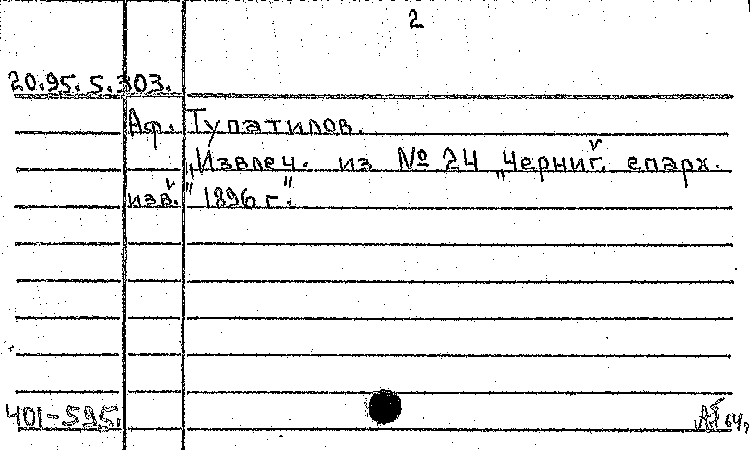 2
20.95.5.303.
Аф. Тупатилов.
„Извлеч. из № 24 „Черниг. епарх.
изв." 1896 г."
401-595.